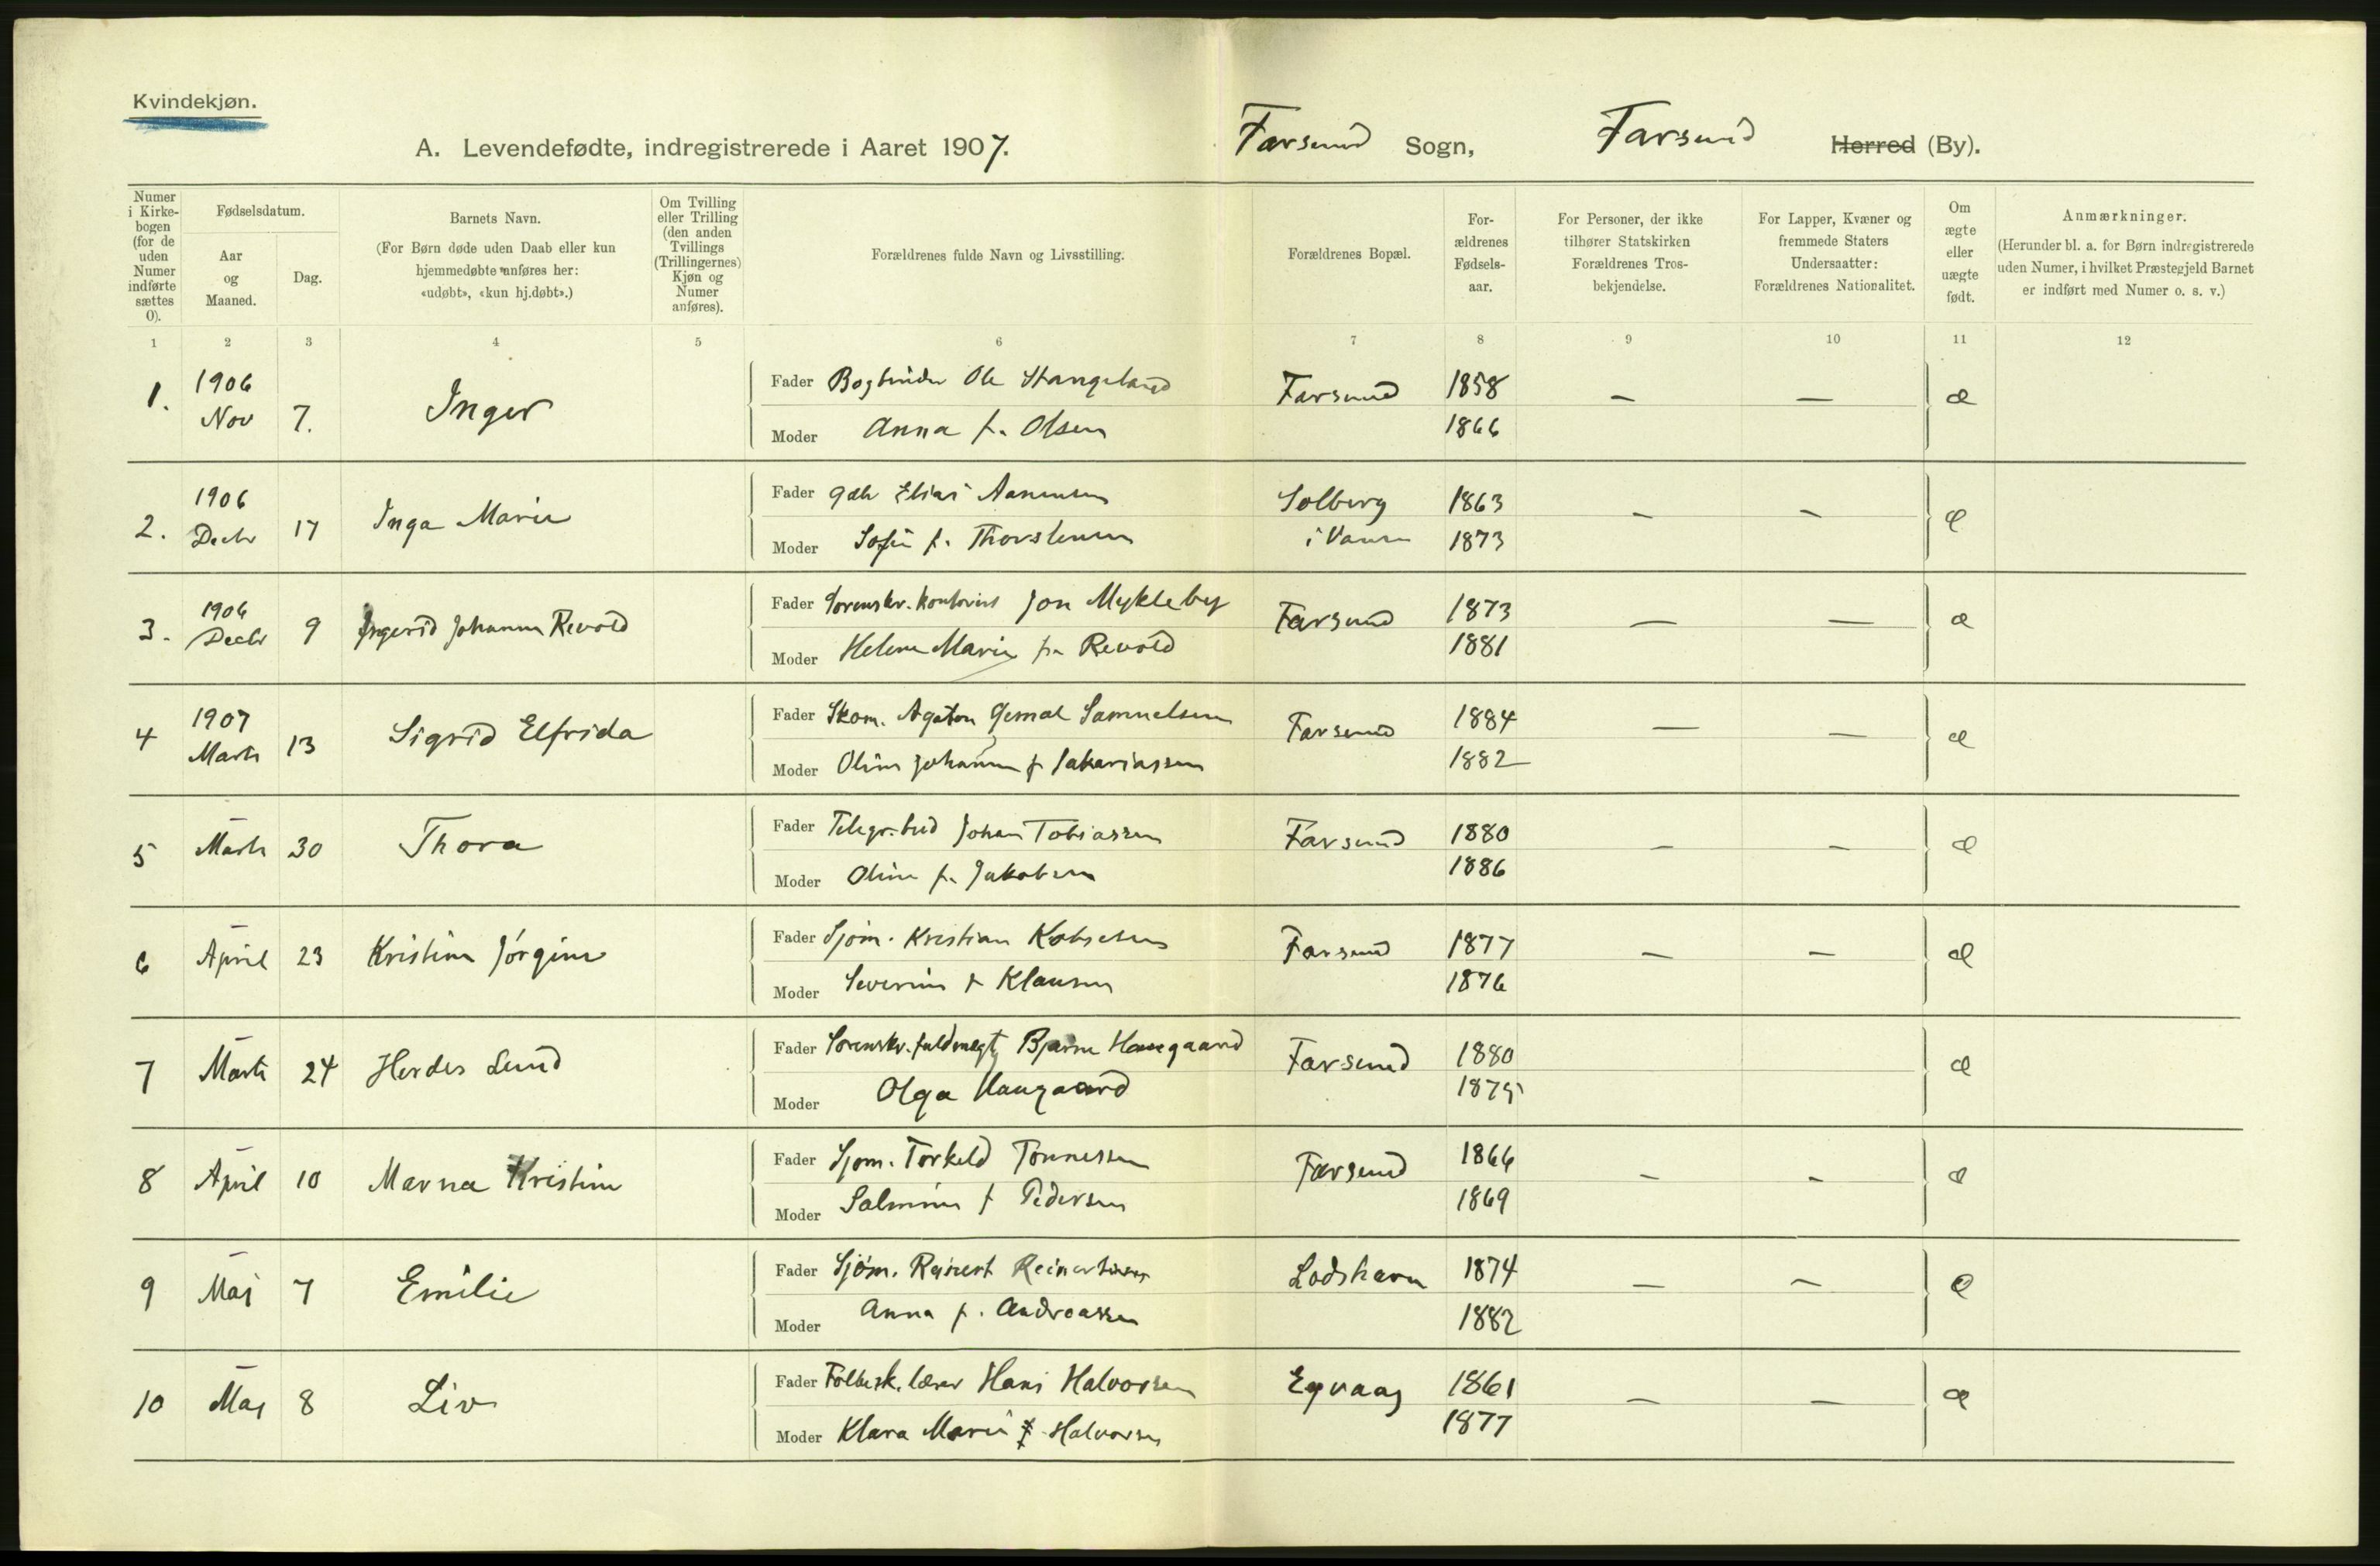 Kvindekjøn.
A. Levendefødte, indregistrerede i Aaret 1907. Farsund Sogn, Farsund Herred (By).
Numer i Kirke-bogen (for de uden Numer indførte sættes 0).
Fødselsdatum.
Aar og Maaned.
Dag.
Barnets Navn.
(For Børn døde uden Daab eller kun hjemmedøbte anføres her: «udøbt», «kun hj.døbt».)
Om Tvilling eller Trilling (den anden Tvillings (Trillingernes) Kjøn og Numer anføres).
Forældrenes fulde Navn og Livsstilling.
Forældrenes Bopæl.
For-ældrenes Fødsels-aar.
For Personer, der ikke tilhører Statskirken Forældrenes Tros-bekjendelse.
For Lapper, Kvæner og fremmede Staters Undersaatter: Forældrenes Nationalitet.
Om ægte eller uægte født.
Anmærkninger.
(Herunder bl. a. for Børn indregistrerede uden Numer, i hvilket Præstegjeld Barnet er indført med Numer o. s. v.)
1 2 3 4 5 6 7 8 9 10 11 12
1. 1906 Nov 7. Inger Fader Bogbinder Ole Stangeland Farsund 1858 – – æ
Moder Anna f. Olsen 1866
2. 1906 Decbr 17 Inga Marie Fader Elias Aanensen Solberg 1863 – – æ
Moder Sofie f. Thorstensen i Vanse 1873
3. 1906 Decbr 9 Ingerid Johanne Revold Fader Sorenskr. kontorist Jon Mykleby Farsund 1873 – – æ
Moder Helene Marie f. Revold 1881
4 1907 Marts 13 Sigrid Elfrida Fader Skom. Agaton Samuelsen Farsund 1884 – – æ
Moder Oline Johanne f Sakariassen 1882
5 – Marts 30 Thora Fader Telegr.bud Johan Tobiassen Farsund 1880 – – æ
Moder Oline f. Jakobsen 1886
6 – April 23 Kristine Jørgine Fader Sjøm. Kristian Farsund 1877 – – æ
Moder Severine f Klausen 1876
7 – Marts 24 Herdes Lund Fader Sorenskr. fuldmægtg Bjarne Haugaard Farsund 1880 æ
Moder Olga Haugaard 1875
8 – April 10 Marna Kristine Fader Sjøm. Torkeld Tønnessen Farsund 1866 – – æ
Moder Salmine f Pedersen 1869
9 – Mai 7 Emilie Fader Sjøm. Reinert Reinertsen Lodshavn 1874 – – æ
Moder Anna f. Andreassen 1882
10 – Mai 8 Liv Fader Folkesk. lærer Hans Halvorsen Egvaag 1861 – – æ
Moder Klara Marie f Halvorsen 1877